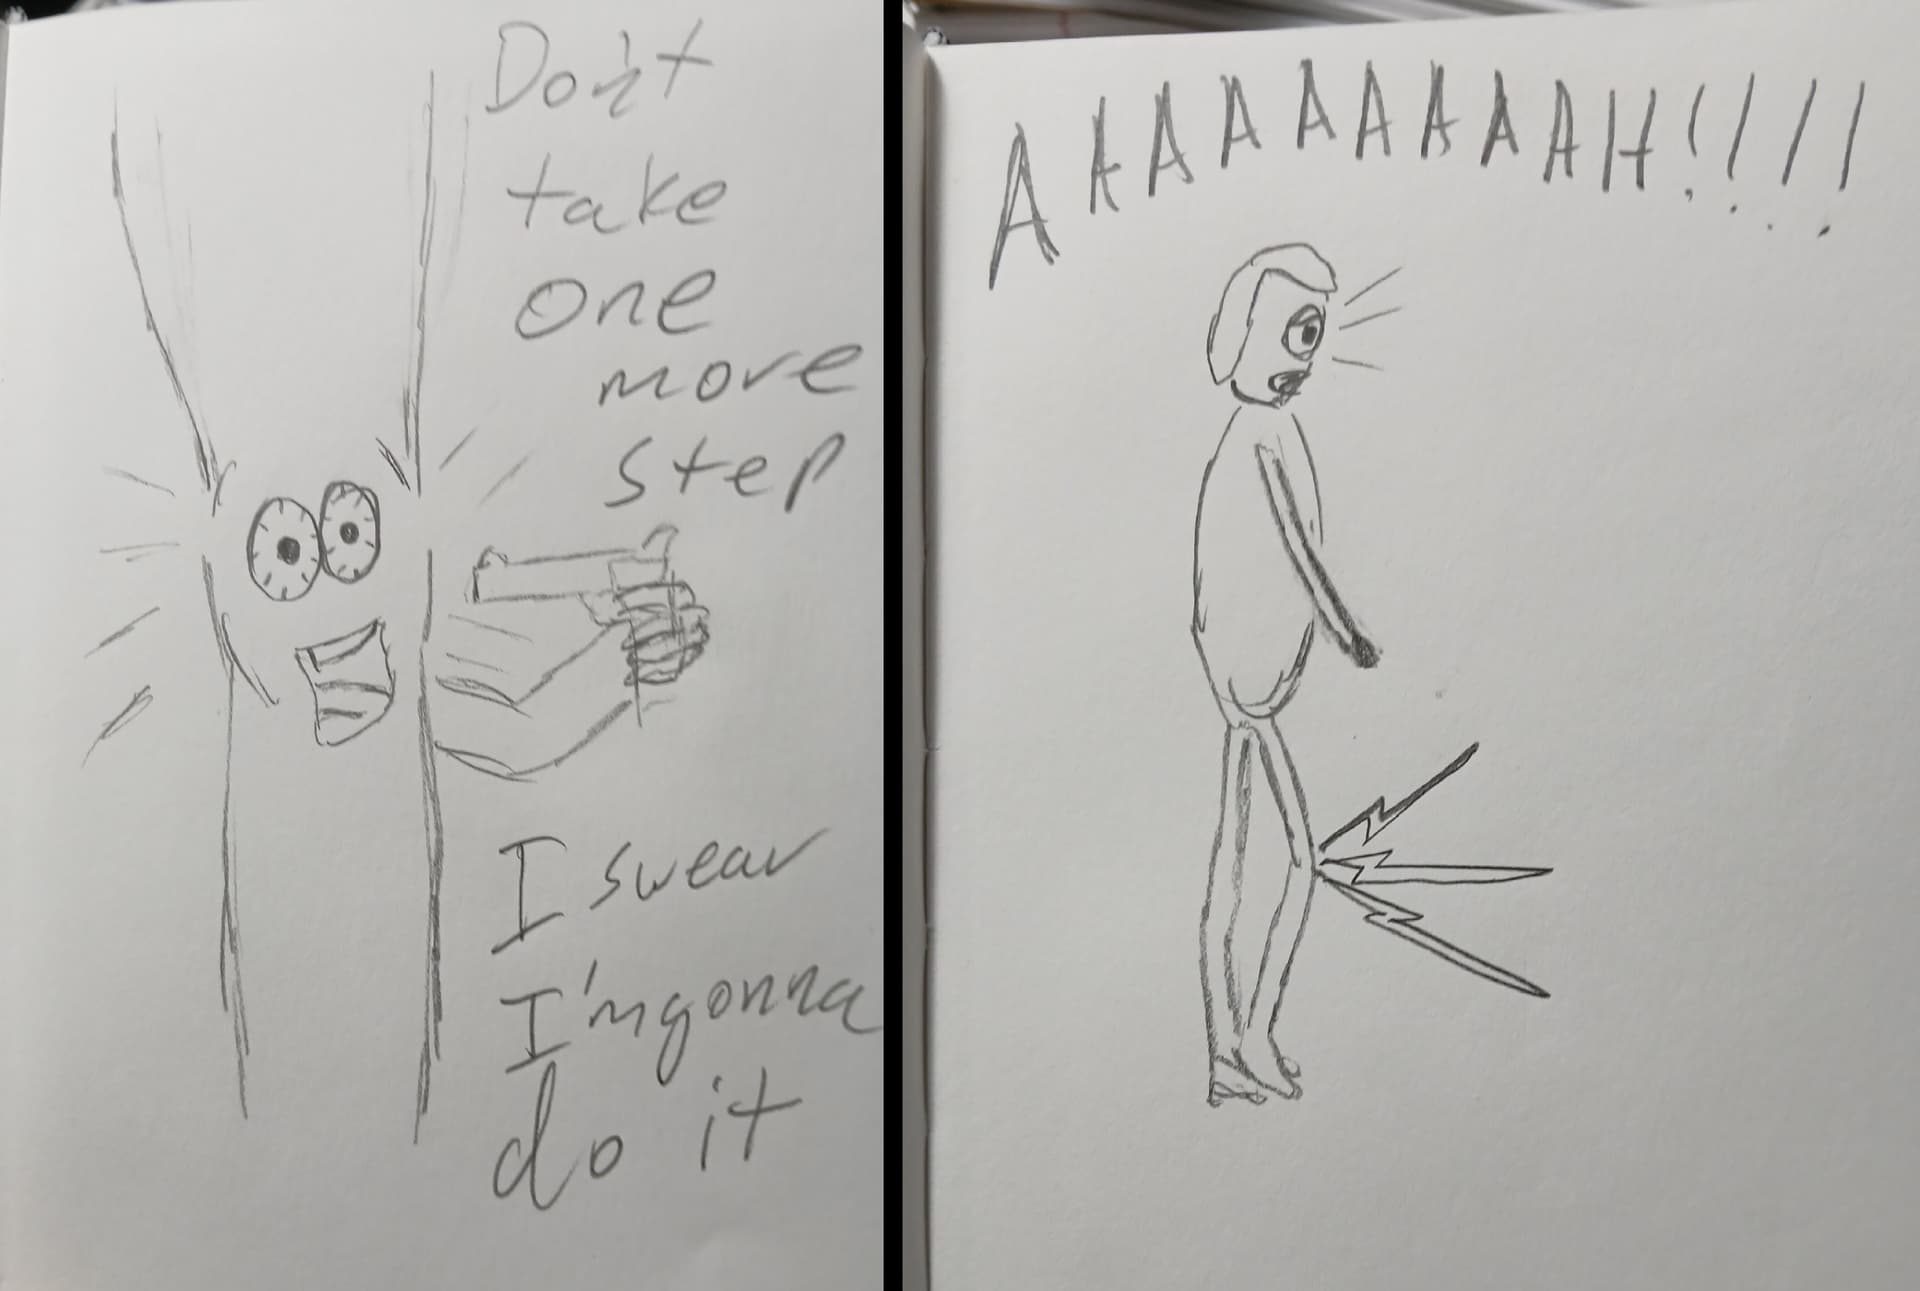 Don't
take
one
more
step
I swear
I'm gonna
do it
AAAAAAAAAH!!!!